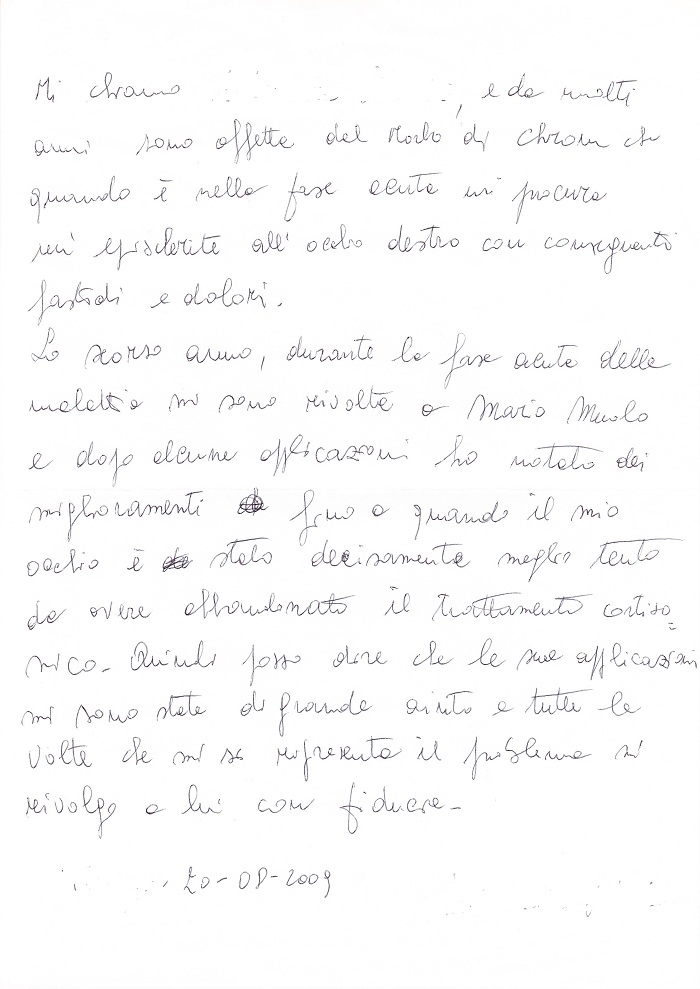 Mi chiamo , e da molti
anni sono affetta dal Morbo di Chron che
quando è nella fase acuta mi procura
un' episclerite all' occhio destro con conseguenti
fastidi e dolori.
Lo scorso anno, durante la fase acuta della
malattia mi sono rivolta a Mario
e dopo alcune applicazioni ho notato dei
miglioramenti fino a quando il mio
occhio è stato decisamente meglio tanto
da avere abbandonato il trattamento cortiso=
nico. Quindi posso dire che le sue applicazioni
mi sono state di grande aiuto e tutte le
volte che mi si ripresenta il problema mi
rivolgo a lui con fiducia.
20-08-2009